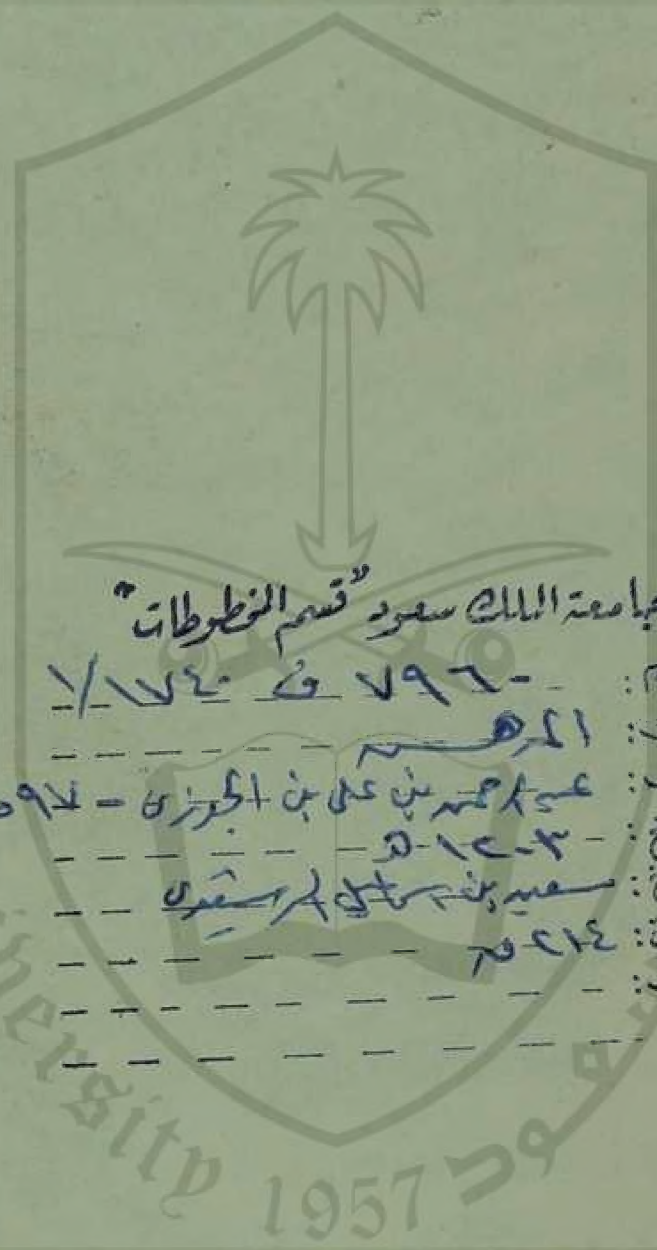 جامعة الملك سعود "قسم المخطوطات"
٧٩٦٠ ف ١/١٧٤٠
المدهش
عبد الرحمن بن علي بن الجوزي - ٥٩٧
١٢٠٣ هـ
سعيد بن إسماعيل
٢١٤ ق
versity 1957 سعود